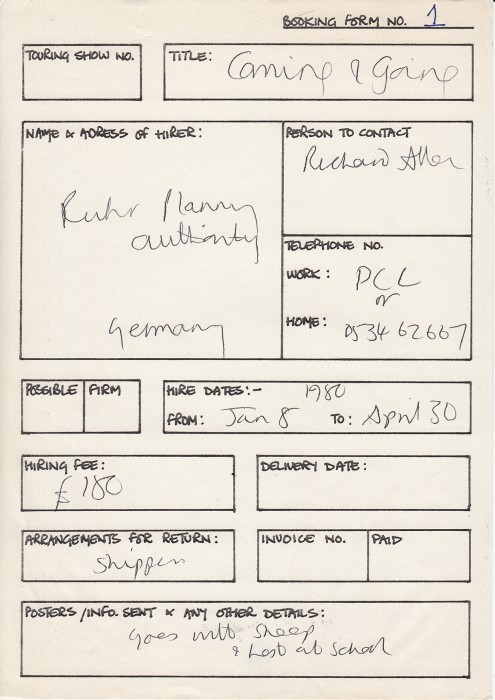 BOOKING FORM NO. 1
TOURING SHOW NO.
TITLE: Coming & Going
NAME & ADRESS OF HIRER:
Ruhr Planning
authority
Germany
PERSON TO CONTACT
Richard Allen
TELEPHONE NO.
WORK: PCL
or
HOME: 0534 62667
POSSIBLE FIRM
HIRE DATES:- 1980
FROM: Jan 8 TO: April 30
HIRING FEE:
£180
DELIVERY DATE:
ARRANGEMENTS FOR RETURN:
Shippers
INVOICE NO. PAID
POSTERS/INFO. SENT & ANY OTHER DETAILS:
goes with Sheep
& Lost at School